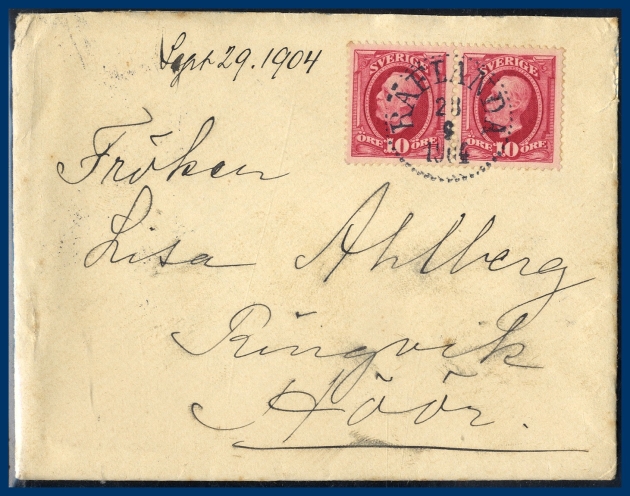 Sept 29. 1904
SVERIGE SVERIGE
ÖRE 10 ÖRE ÖRE 10 ÖRE
RÄFLANDA
28
9
1904
Fröken
Lisa Ahlberg
Ringvik
Höör.